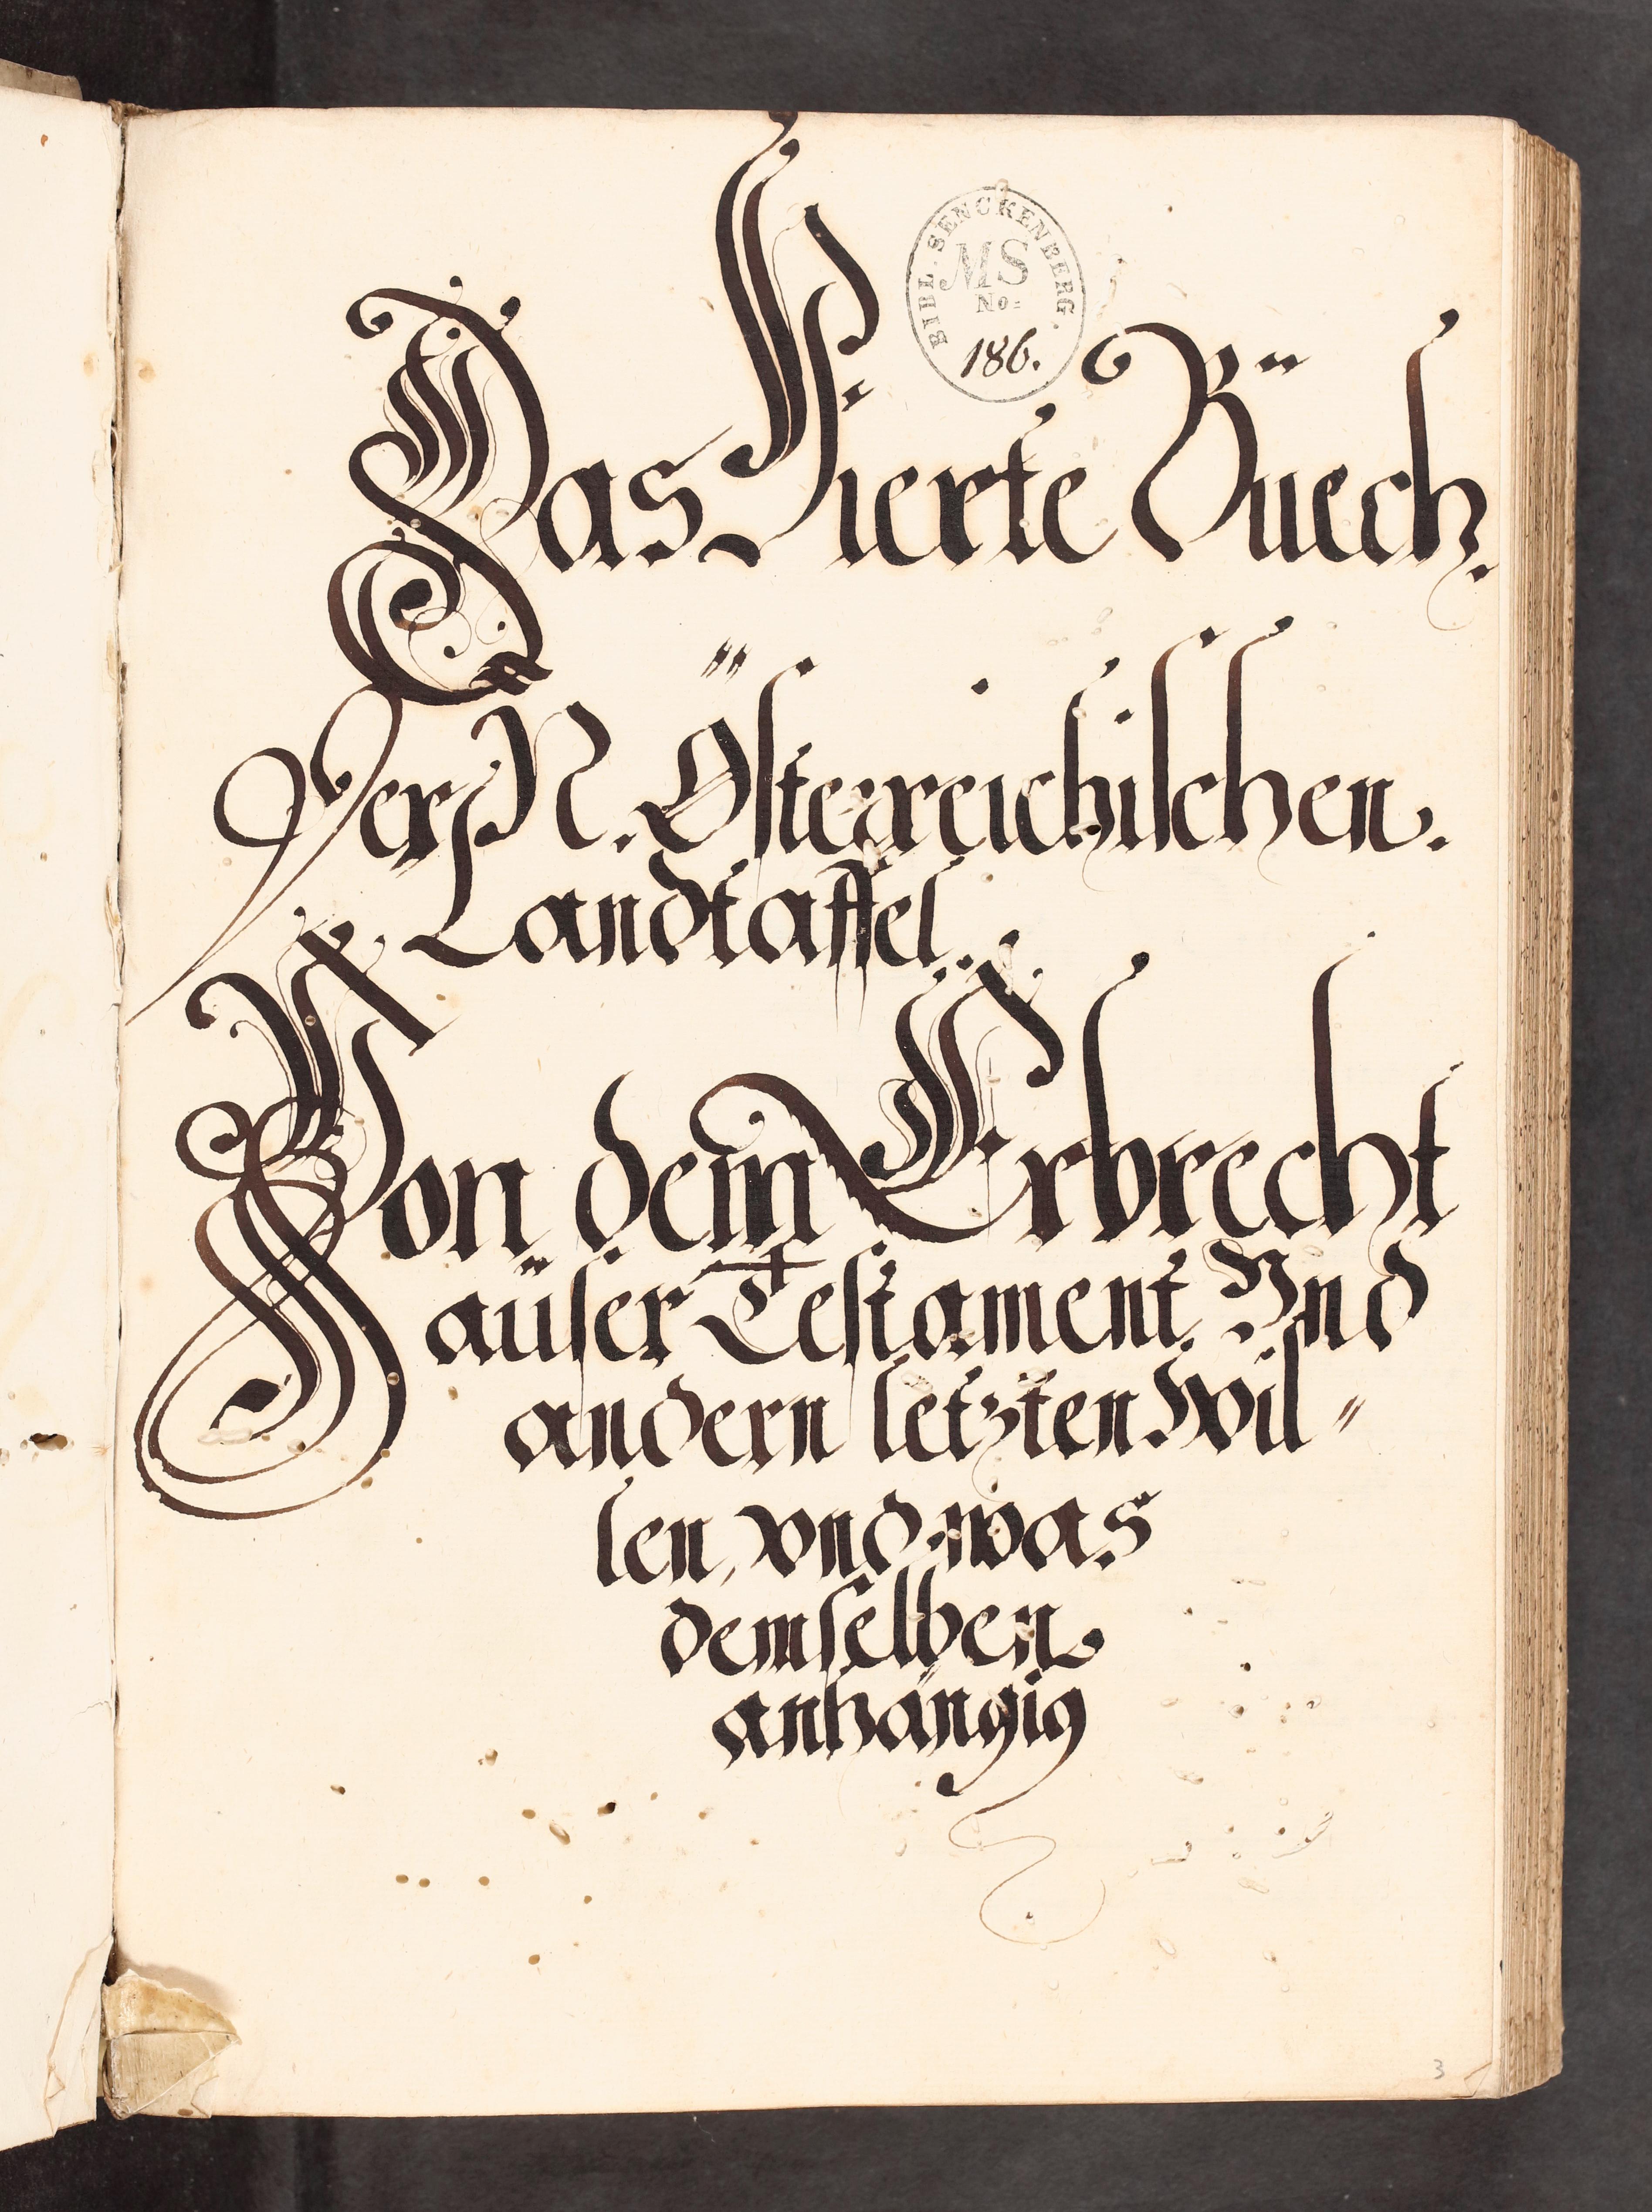 BIBL. SENCKENBERG.
MS
No:
186.
Das Vierte Büech.
Der N. Össterreichischen.
Landtaffel.
Von dem Erbrecht
aüser Testament. Vnd
andern letzten Wil„
len, vnd was
demselben
anhängig
3